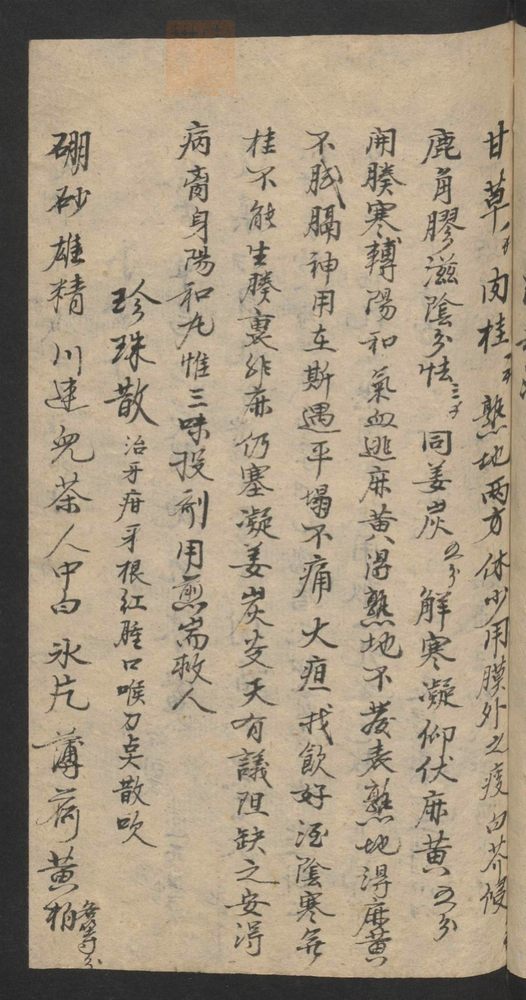 甘草 肉桂 熟地两方休少用膜外之痰白芥侵
鹿角膠滋陰分怯三 同姜炭五分 解寒凝仰伏麻黄五分
開腠寒轉陽和氣血逃麻黄得熟地不發表熟地得麻黄
不膩膈神用在斯遇平塌不痛大疽找飲好酒陰寒無
桂不能生腠裏非麻仍塞凝姜炭芟天有議阻缺之安得
病裔身陽和丸惟三味投劑用煎崇救人
珍珠散 治牙疳牙根紅腫口喉刀点散吹
硼砂雄精川連兒茶人中白氷片薄荷黄柏各等分